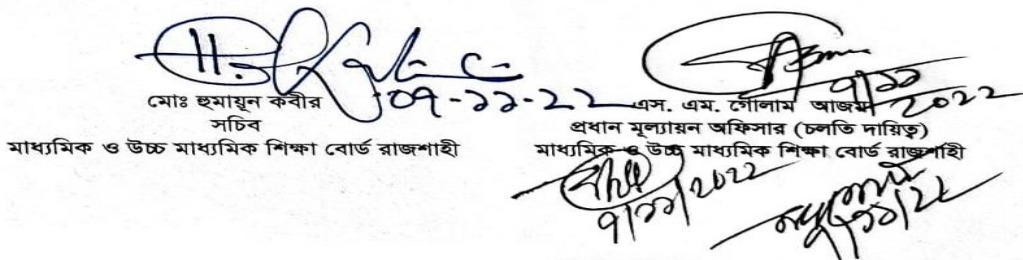 ০৭-১১-২২
মোঃ হুমায়ুন কবীর
সচিব
মাধ্যমিক ও উচ্চ মাধ্যমিক শিক্ষা বোর্ড রাজশাহী
৭/১১
২০২২
এস. এম. গোলাম আজম
প্রধান মূল্যায়ন অফিসার (চলতি দায়িত্ব)
মাধ্যমিক ও উচ্চ মাধ্যমিক শিক্ষা বোর্ড রাজশাহী
৭/১১/২০২২